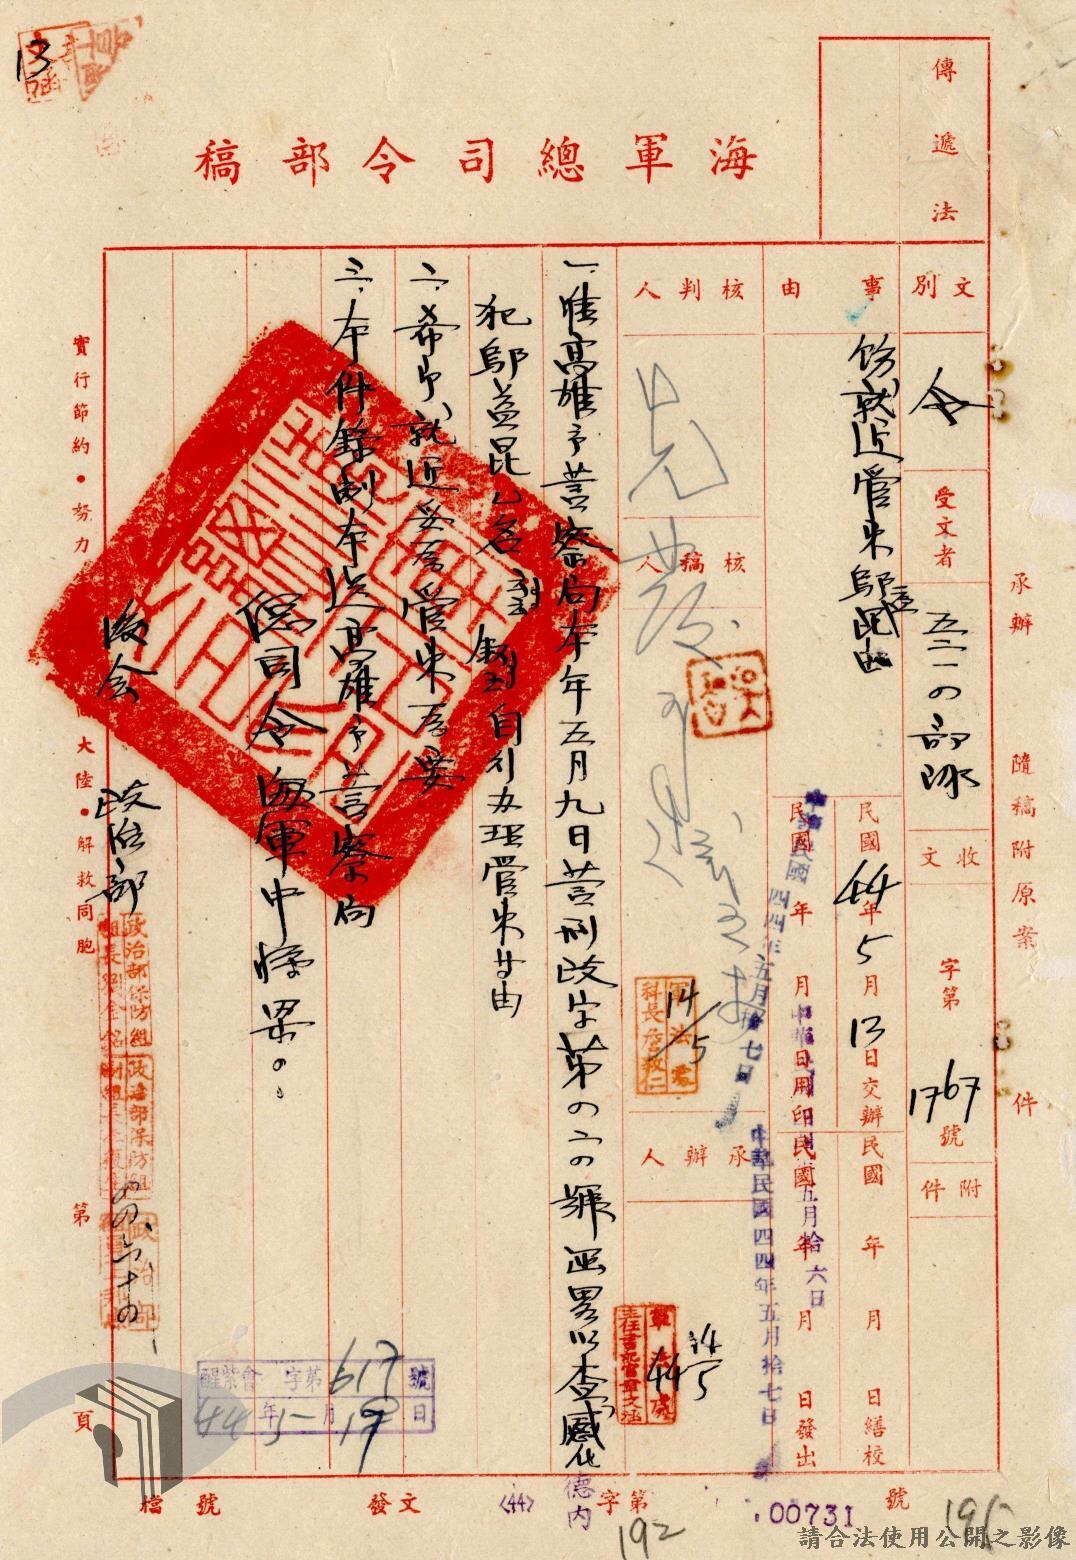 13
海軍總司令部稿
傳遞法
文別
令
受文者
五二一四部隊
收文
字第
1767
號
附件
事由
飭就近管束鄔益昆由
民國44年5月13日交辦
民國 年 月 日繕校
民國 年 月 日用印
民國 年 月 日發出
中華民國四四年五月拾七日
五月拾六日
中華民國四四年五月拾七日
核判人
核稿人
承辦人
軍法處
科長詹毅仁
14/5
軍法處
44
14/5
一、准高雄市警察局本年五月九日警刑政字第四二四號函畧以查感化
犯鄔益昆乙名
自行办理管束等由
二、希即就近妥為管束為要
三、本件錄副本送高雄市警察局
總司令海軍中將梁〇〇
後会 政治部
政治部保防組
政治部保防組
政治部
醒紫會字第617號
44年5月19日
實行節約•努力
大陸•解救同胞
第 頁
承辦 隨稿附原案 件
檔號
發文
(44)
字第
德內
00731
號
192
195
請合法使用公開之影像